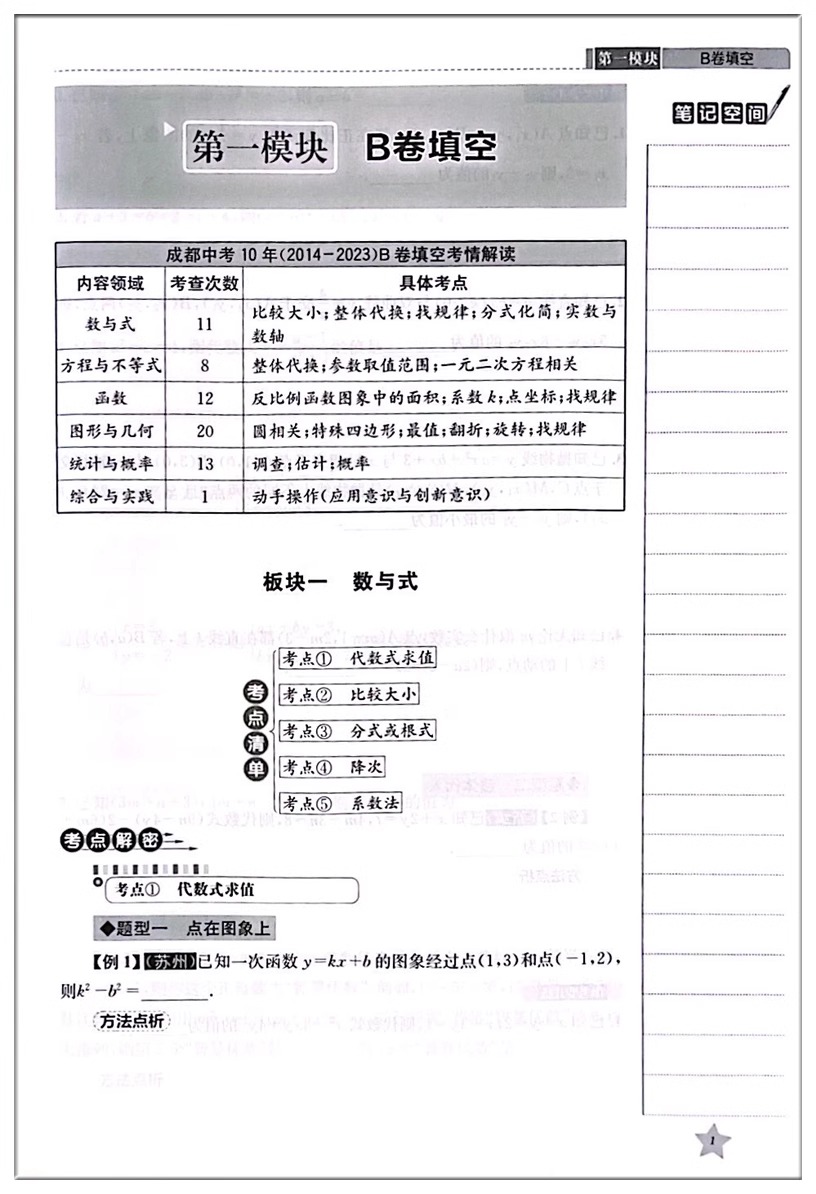 第一模块 B卷填空
笔记空间
第一模块 B卷填空
成都中考10年(2014-2023)B卷填空考情解读
内容领域 考查次数 具体考点
数与式 11 比较大小;整体代换;找规律;分式化简;实数与
数轴
方程与不等式 8 整体代换;参数取值范围;一元二次方程相关
函数 12 反比例函数图象中的面积;系数k;点坐标;找规律
图形与几何 20 圆相关;特殊四边形;最值;翻折;旋转;找规律
统计与概率 13 调查;估计;概率
综合与实践 1 动手操作(应用意识与创新意识)
板块一 数与式
考点清单
考点① 代数式求值
考点② 比较大小
考点③ 分式或根式
考点④ 降次
考点⑤ 系数法
考点解密
考点① 代数式求值
◆题型一 点在图象上
【例1】(苏州)已知一次函数y=kx+b的图象经过点(1,3)和点(-1,2),
则k²-b²=______.
方法点析
1